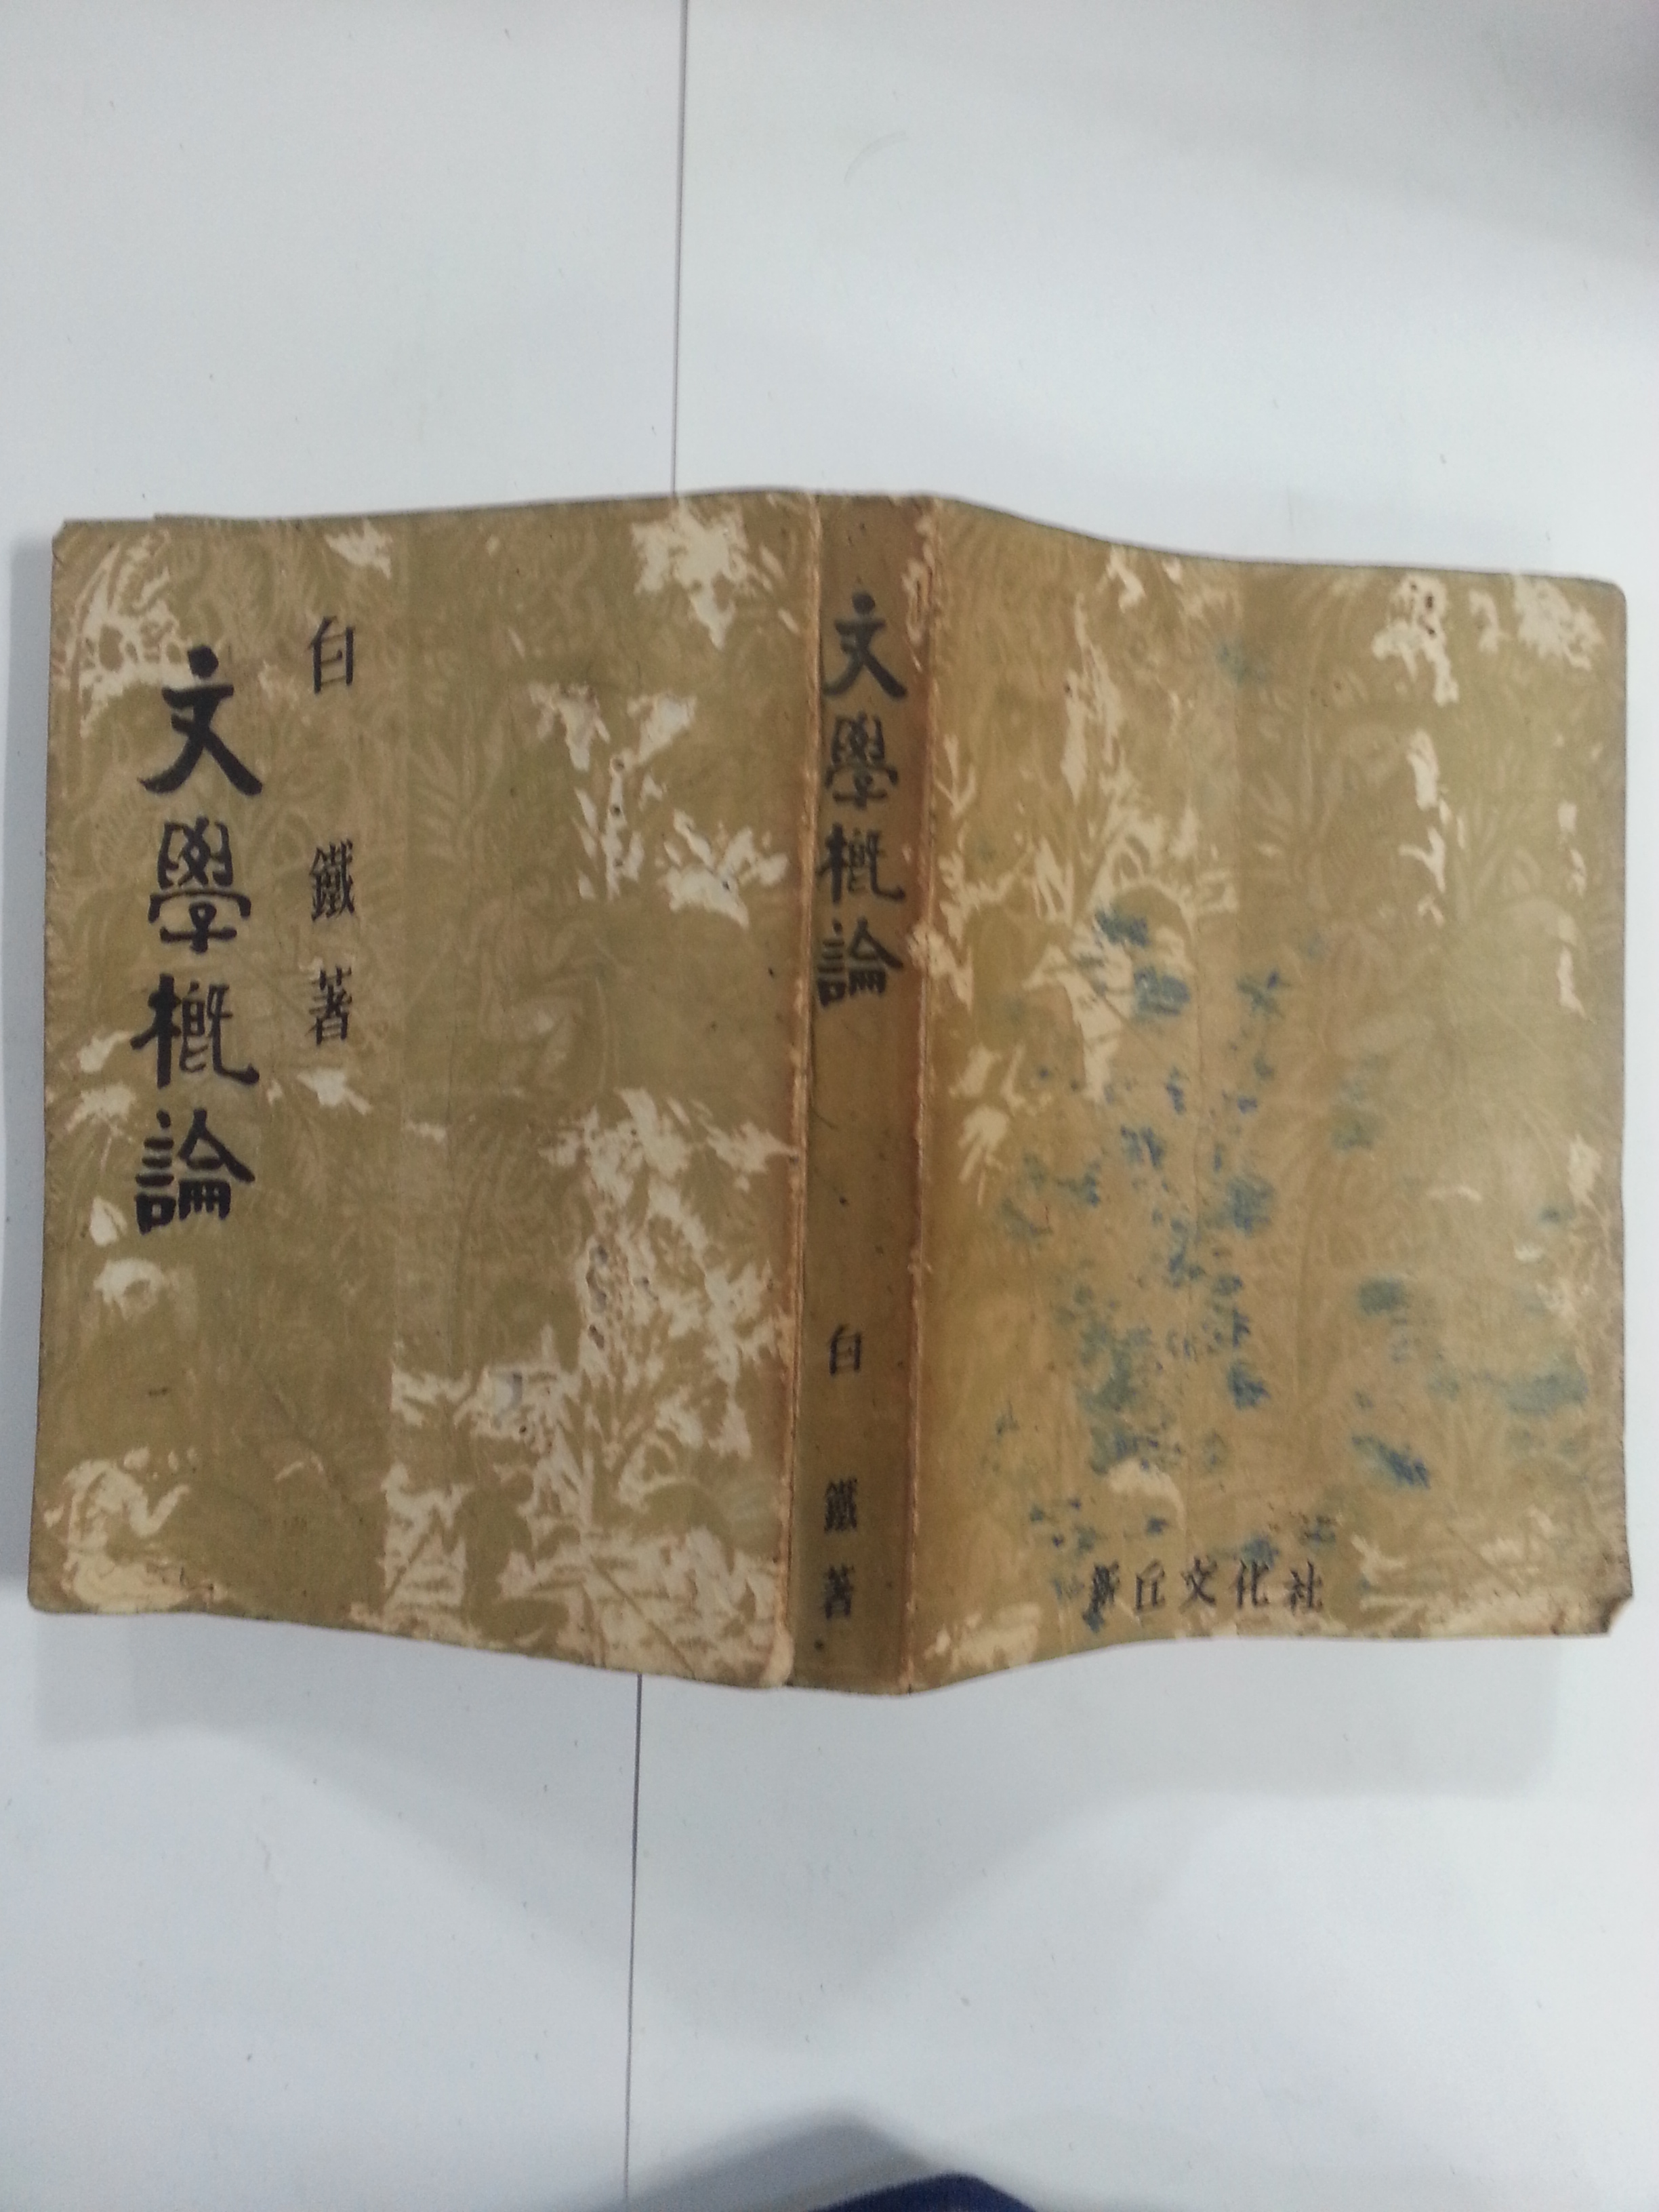 文學概論
白鐵著
文學概論
白鐵著
新丘文化社